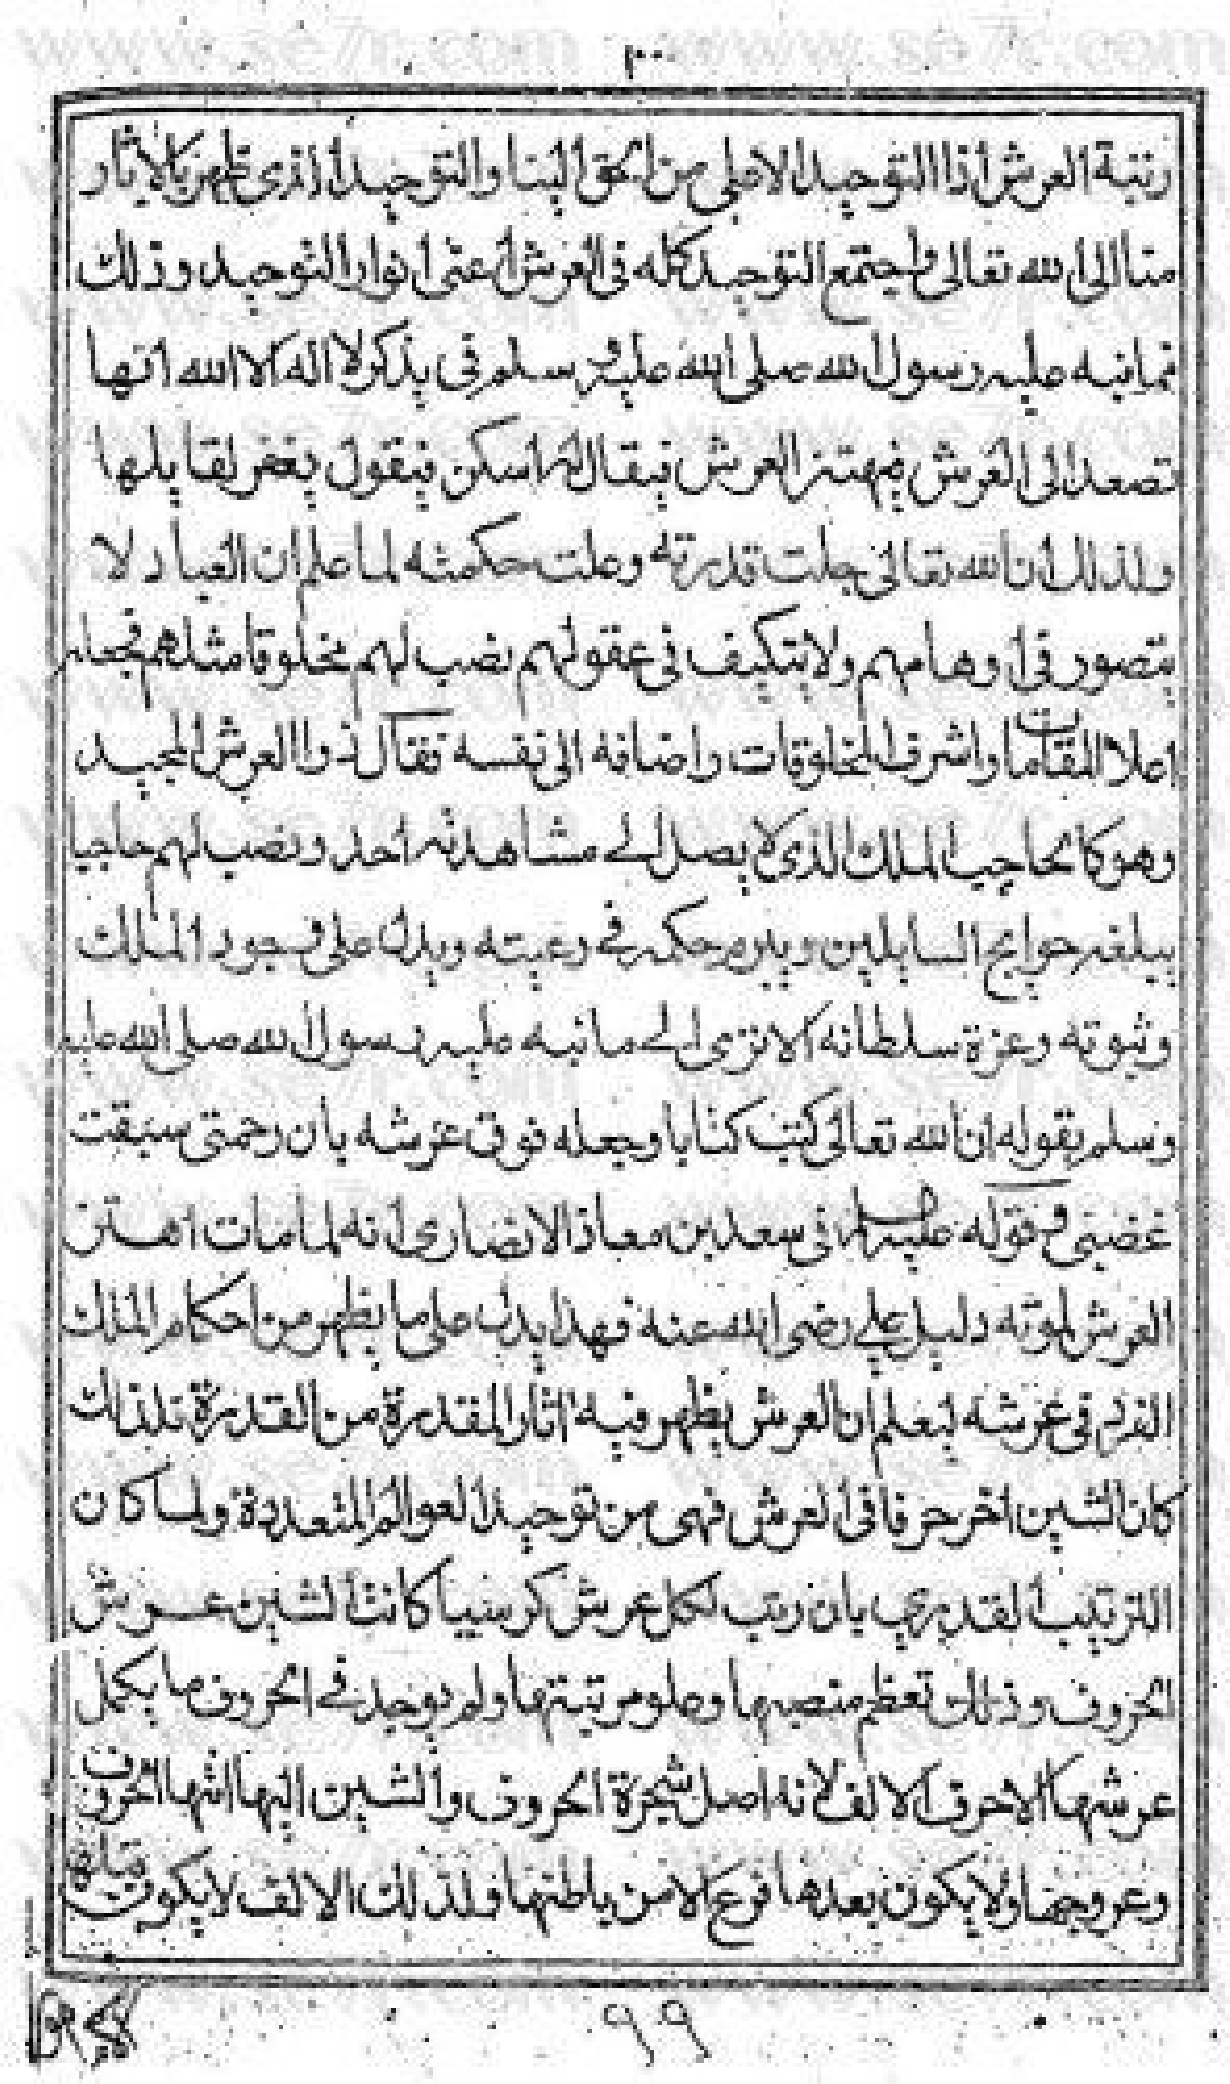 www.se7r.com www.se7r.com
١٠٠
رتبة العرش اذا التوحيد الاعلى من الحق الينا والتوحيد الذى ظهر بالاثار
منا الى الله تعالى واجتمع التوحيد كله فى العرش اعنى انوار التوحيد وذلك
نمانبه عليه رسول الله صلى الله عليه وسلم فى بذكر لا اله الا الله انها
تصعد الى العرش فيهتز العرش فيقال له اسكن فيقول يغفر لقايلها
ولذلك ان الله تعالى جلت قدرته وعلت حكمته لما علم ان العباد لا
يتصور فى اوهامهم ولا يتكيف فى عقولهم نصب لهم مخلوقا مثلهم فجعله
اعلا المقامات واشرف المخلوقات واضافه الى نفسه فقال ذوا العرش المجيد
وهو كالحاجب الملك الذى لا يصل الى مشاهدته احد ونصب لهم حاجبا
يبلغه حوايج السايلين ويبرم حكمه فى رعيته ويدل على وجود الملك
وثبوته وعزة سلطانه الا ترى الى مانبه عليه رسول الله صلى الله عليه
وسلم بقوله ان الله تعالى كتب كتابا وجعله فوق عرشه بان رحمتى سبقت
غضبى وقوله عليه السلام فى سعد بن معاذ الانصارى انه لما مات اهتز
العرش لموته دليل على رضى الله عنه فهذا يدل على ما يظهر من احكام الملك
الفرد فى عرشه ليعلم ان العرش يظهر فيه اثار المقدرة من القدرة فلذلك
كان الشين اخر حرفا فى العرش فهى من توحيد العوالم المتعددة ولما كان
الترتيب القديرى بان رتب لكل عرش كرسيا كانت الشين عرش
الحروف وذلك تعظم منصبها وعلو مرتبتها ولم يوجد فى الحروف ما يكمل
عرشها الا حرف الالف لانه اصل شجرة الحروف والشين اليها انتها الحروف
وعروجها ولا يكون بعدها فرع الا من باطنها ولذلك الالف لا يكون قبله
٩٩